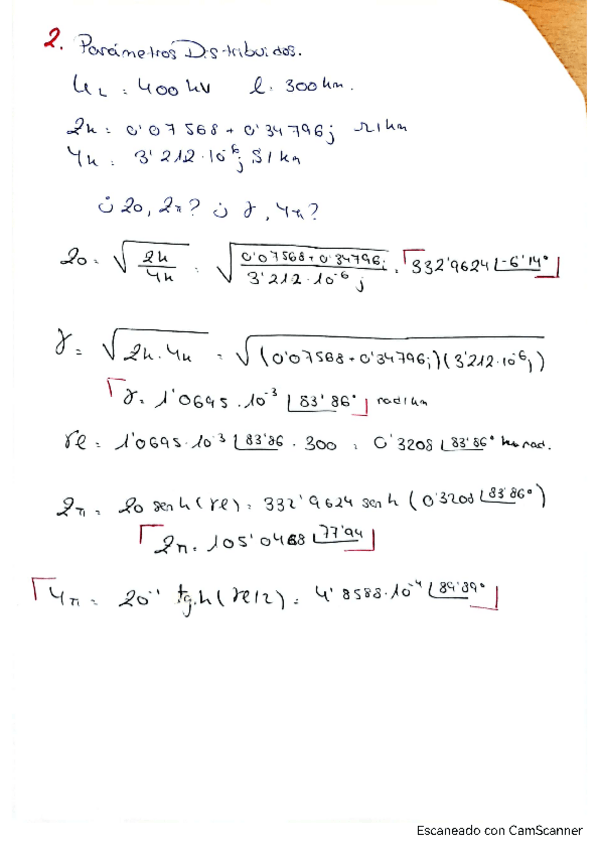 2. Parámetros Distribuidos.
UL = 400 kV l = 300 km.
Zk = 0'07568 + 0'34796j Ω/km
Yk = 3'212·10⁻⁶j S/km
¿Z0, Zπ? ¿γ, Yπ?
Z0 = √(Zk/Yk) = √((0'07568 + 0'34796j)/(3'212·10⁻⁶j)) = 332'9624 ∠-6'14°
γ = √(Zk·Yk) = √((0'07568 + 0'34796j)(3'212·10⁻⁶j))
γ = 1'0695·10⁻³ ∠83'86° rad/km
γl = 1'0695·10⁻³ ∠83'86 · 300 = 0'3208 ∠83'86° rad.
Zπ = Z0 senh(γl) = 332'9624 senh(0'3208 ∠83'86°)
Zπ = 105'0468 ∠77'94
Yπ = Z0⁻¹ tgh(γl/2) = 4'8588·10⁻⁴ ∠89'89°
Escaneado con CamScanner